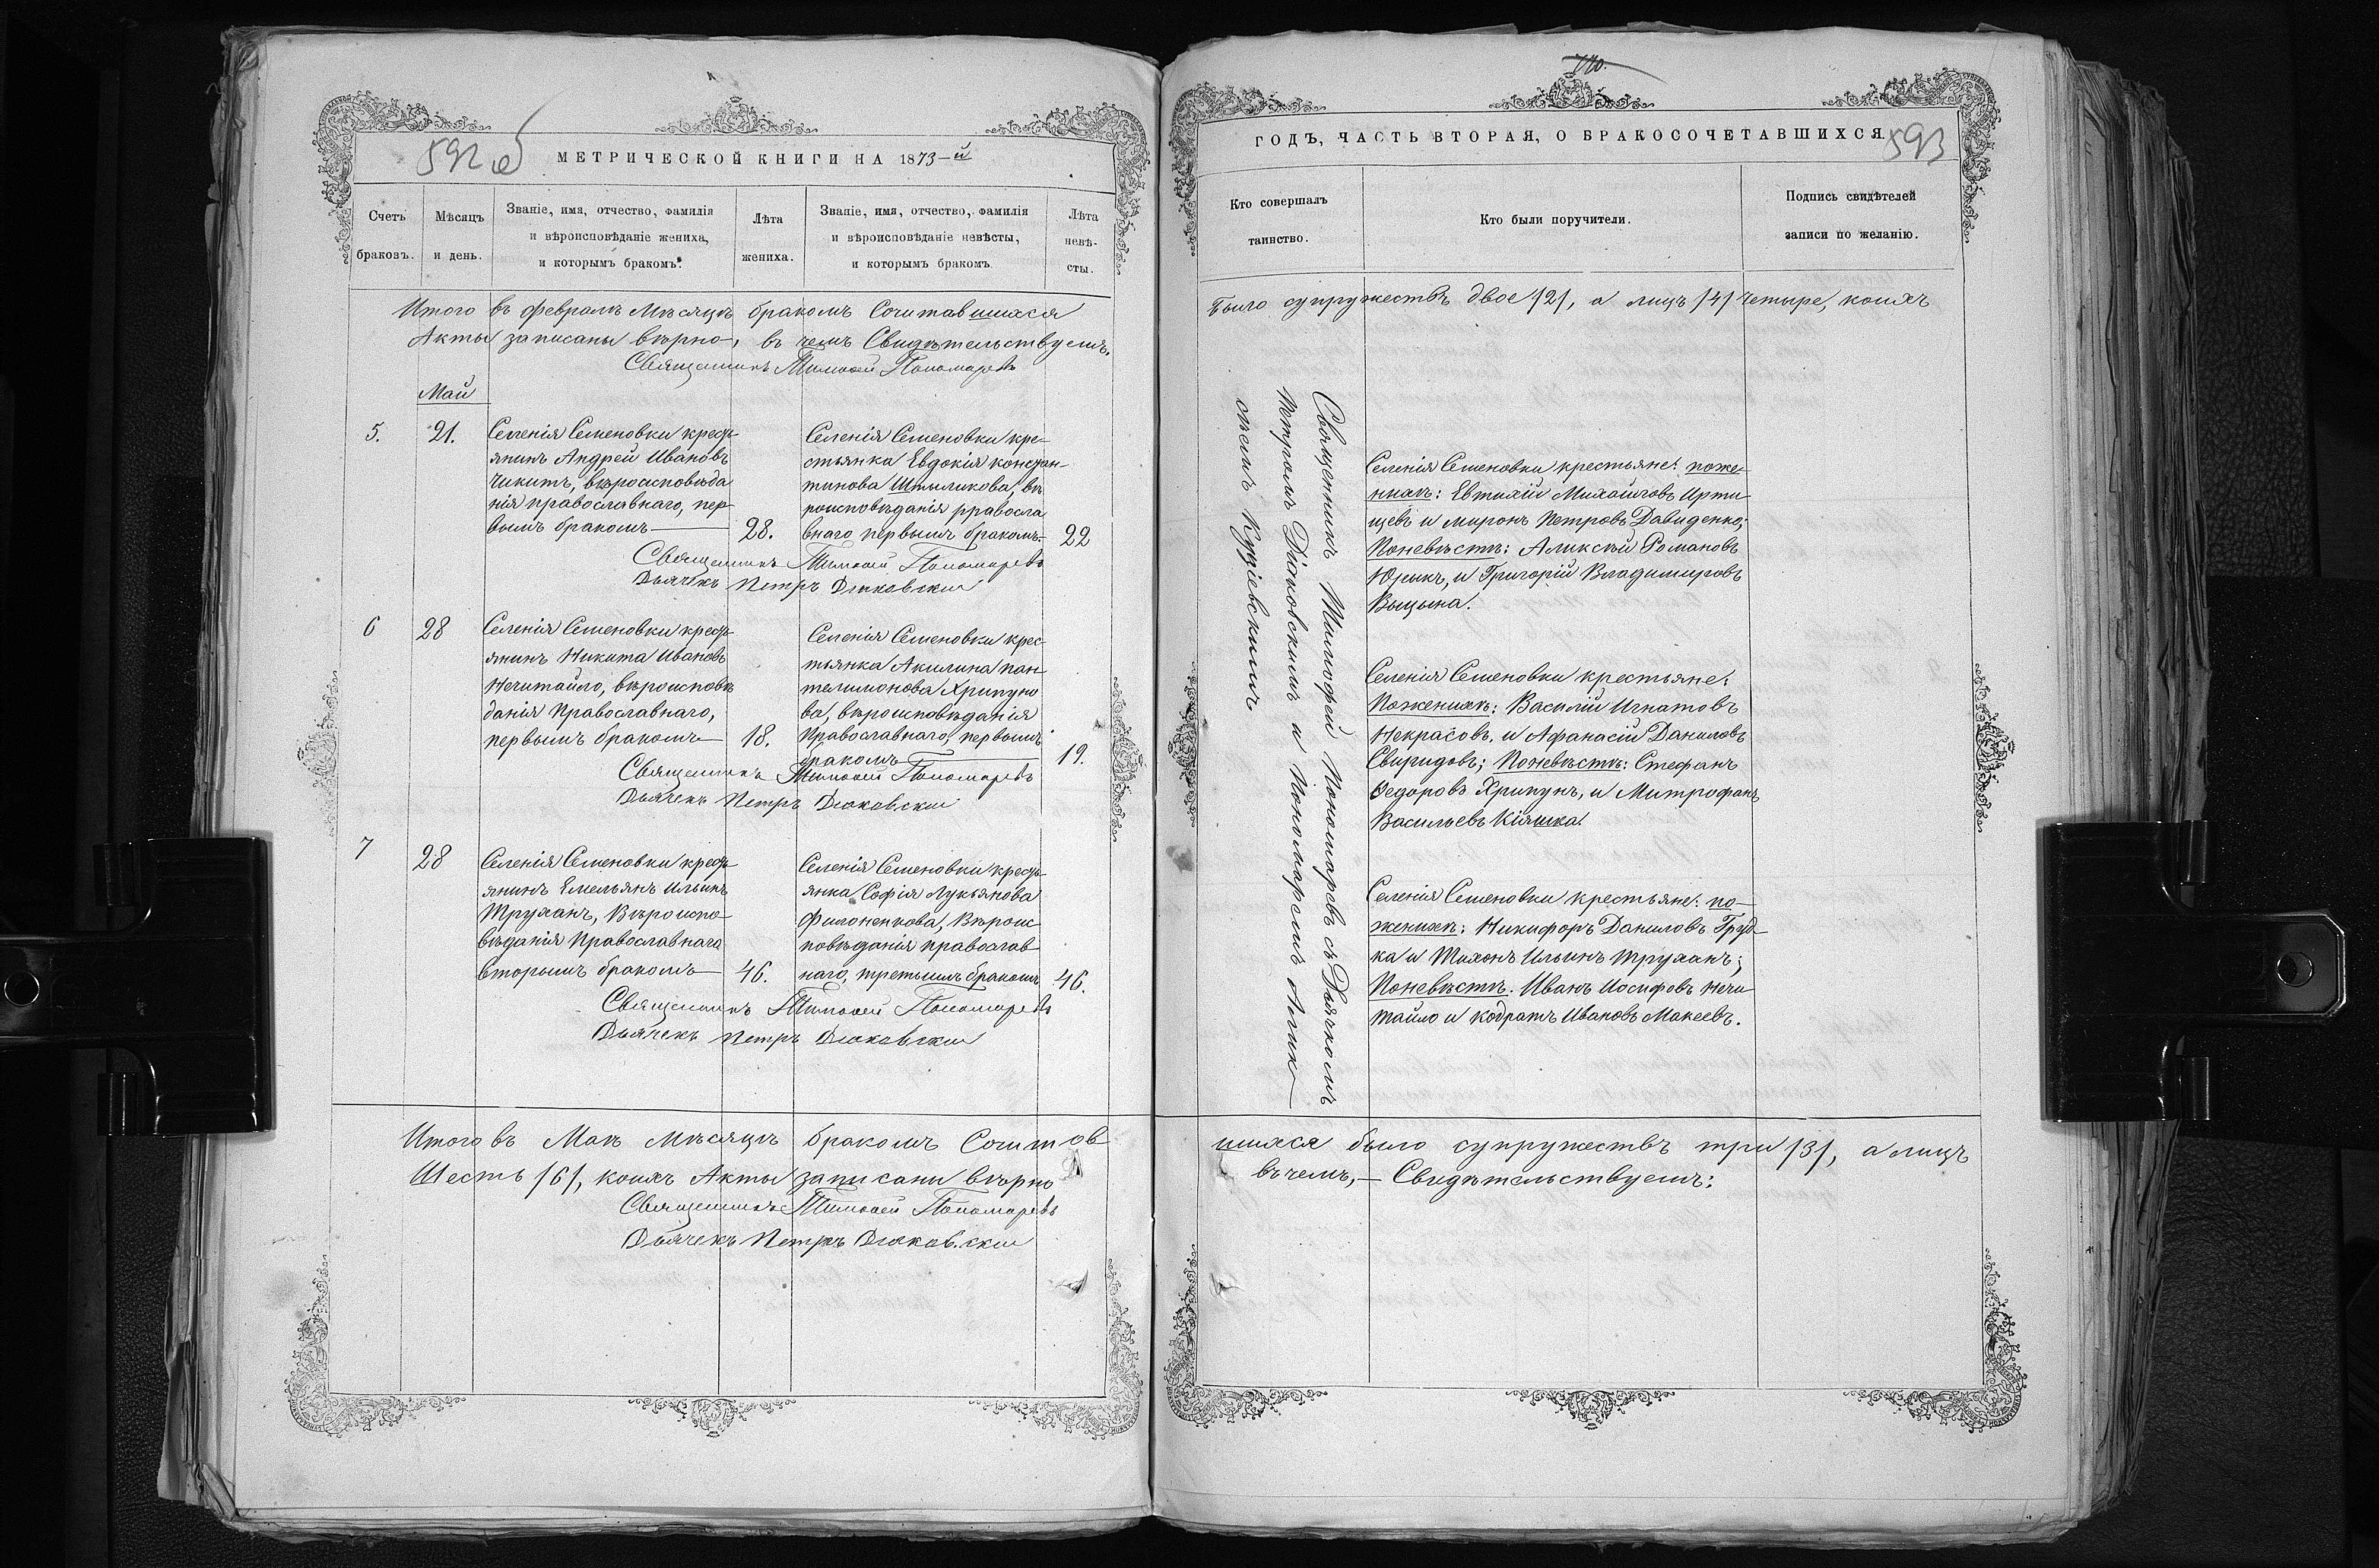 592 об
МЕТРИЧЕСКОЙ КНИГИ НА 1873-й
Счетъ
браковъ.
Мѣсяцъ
и день.
Званіе, имя, отчество, фамилія
и вѣроисповѣданіе жениха,
и которымъ бракомъ.
Лѣта
жениха.
Званіе, имя, отчество, фамилія
и вѣроисповѣданіе невѣсты,
и которымъ бракомъ
Лѣта
невѣ-
сты.
Итого въ февралѣ Мѣсяцѣ бракомъ Сочитавшихся
Акты записаны вѣрно, въ чемъ Свидѣтельствуемъ.
Священникъ Тимоѳей Пономаревъ
Май
5.
21.
Селенія Семеновки крест-
янинъ Андрей Ивановъ
Чикитъ, вѣроисповѣда
нія православнаго, пер
вымъ бракомъ
28.
Селенія Семеновки кре-
стьянка Евдокія констан-
тинова Штыликова, вѣ
роисповѣданія рравосла
внаго первымъ бракомъ.
22
Священникъ Тимоѳей Пономаревъ
Дьячекъ Петръ Дяковскій
6
28
Селенія Семеновки крест-
янинъ Никита Ивановъ
Нечитайло, вѣроисповѣ
данія Православнаго,
первымъ бракомъ
18.
Селенія Семеновки крес-
тьянка Акилина пан-
телимонова Хрипуно
ва, вѣроисповѣданія
Православнаго, первымъ
бракомъ
19.
Священникъ Тимоѳей Пономаревъ
Дьячекъ Петръ Дяковскій
7
28
Селенія Семеновки крест-
янинъ Емельянъ Ильинъ
Труханъ, Вѣроиспо-
вѣданія Православнаго
вторымъ бракомъ
46.
Селенія Семеновки крест-
янка Софія Лукьянова
Филоненкова, Вѣроис
повѣданія православ
наго, третьимъ бракомъ
46.
Священникъ Тимоѳей Пономаревъ
Дьячекъ Петръ Дяковскій
Итого въ Маѣ Мѣсяцѣ бракомъ Сочитав
Шесть /6/, коихъ Акты записаны вѣрно
Священникъ Тимоѳей Пономаревъ
Дьячекъ Петръ Дяковскій
ГОДЪ, ЧАСТЬ ВТОРАЯ, О БРАКОСОЧЕТАВШИХСЯ
593
Кто совершалъ
таинство.
Кто были поручители.
Подпись свидѣтелей
записи по желанію.
было супружествъ двое /2/, а лицъ /4/ четыре, коихъ
Священникъ Тимофей Пономаревъ съ Дьячкомъ
Петромъ Діаковскимъ и Пономаремъ Алик-
сѣемъ
Селенія Семеновки крестьяне: поже-
нихѣ: Евтихій Михайловъ Ирти
щевъ и миронъ Петровъ Давиденко;
Поневѣстѣ: Аликсѣй Романовъ
Юрыкъ, и Григорій Владимировъ
Выцына.
Селенія Семеновки крестьяне:
Поженихѣ: Василій Игнатовъ
Некрасовъ. и Афанасій Даниловъ
Свиридовъ; Поневѣстѣ: Стефанъ
Ѳедоровъ Хрипунъ, и Митрофанъ
Васильевъ Кіяшка.
Селенія Семеновки крестьяне: по-
женихѣ: Никифоръ Даниловъ Груд-
ка и Тихонъ Ильинъ Труханъ;
Поневѣстѣ. Иванъ Иосифовъ Нечи
тайло и кодратъ Ивановъ Макеевъ.
шихся было супружествъ три /3/, а лицъ
въ чемъ, — Свидѣтельствуемъ: